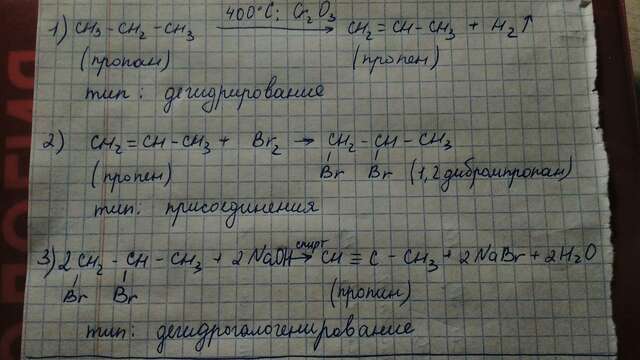 1) CH3-CH2-CH3 400°C; Cr2O3 → CH2=CH-CH3 + H2↑
(пропан) (пропен)
тип: дегидрирование
2) CH2=CH-CH3 + Br2 → CH2-CH-CH3
Br Br
(пропен) (1,2 дибромпропан)
тип: присоединения
3) 2CH2-CH-CH3 + 2NaOH спирт → CH≡C-CH3 + 2NaBr + 2H2O
Br Br
(пропан)
тип: дегидрогалогенирование